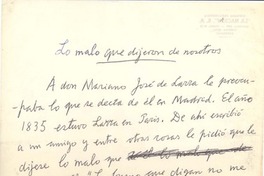 Lo malo que dijeron de nosotros
A don Mariano José de Larra le preocu-
paba lo que se decía de él en Madrid. El año
1835 estuvo Larra en París. De ahí escribió
a un amigo y entre otras cosas le pidió que le
dijese lo malo que
que digan no me